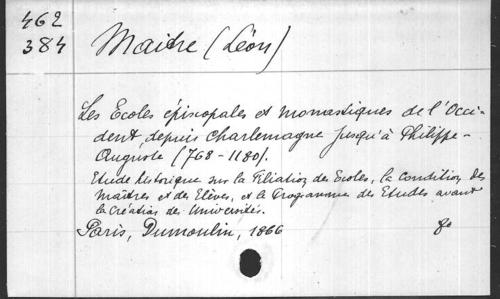 462
384
Maitre (Léon)
Les Ecoles épiscopales et monastiques de l'Occi-
dent, depuis Charlemagne jusqu'à Philippe-
Auguste (768-1180).
Etude historique sur la Filiation des Ecoles, la Condition des
Maîtres et des Elèves, et le Programme des Etudes avant
la Création des Universités.
Paris, Dumoulin, 1866